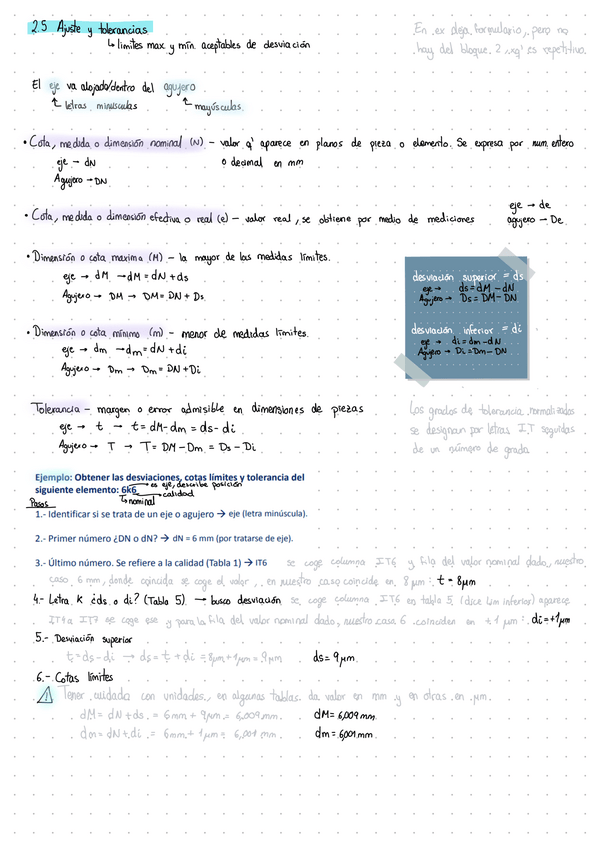 2.5 Ajuste y tolerancias
↳ límites max y mín aceptables de desviación
En ex deja formulario, pero no
hay del bloque 2, xq' es repetitivo
El eje va alojado/dentro del agujero
↑ letras minúsculas ↑ mayúsculas
• Cota, medida o dimensión nominal (N) – valor q' aparece en planos de pieza o elemento. Se expresa por num. entero
eje → dN o decimal en mm
Agujero → DN
• Cota, medida o dimensión efectiva o real (e) – valor real, se obtiene por medio de mediciones
eje → de
agujero → De
• Dimensión o cota maxima (M) – la mayor de las medidas límites.
eje → dM → dM = dN + ds
Agujero → DM → DM = DN + Ds
desviación superior = ds
eje → ds = dM – dN
Agujero → Ds = DM – DN
• Dimensión o cota mínima (m) – menor de medidas límites.
eje → dm → dm = dN + di
Agujero → Dm → Dm = DN + Di
desviación inferior = di
eje → di = dm – dN
Agujero → Di = Dm – DN
Tolerancia – margen o error admisible en dimensiones de piezas
eje → t → t = dM – dm = ds – di
Agujero → T → T = DM – Dm = Ds – Di
Los grados de tolerancia normalizados
se designan por letras IT seguidas
de un número de grado
Ejemplo: Obtener las desviaciones, cotas límites y tolerancia del
siguiente elemento: 6k6 → es eje, describe posición
→ calidad
↳ nominal
Pasos
1.- Identificar si se trata de un eje o agujero → eje (letra minúscula).
2.- Primer número ¿DN o dN? → dN = 6 mm (por tratarse de eje).
3.- Último número. Se refiere a la calidad (Tabla 1) → IT6 se coge columna IT6 y fila del valor nominal dado, nuestro
caso 6 mm, donde coincida se coge el valor, en nuestro caso coincide en 8 µm ∴ t = 8µm
4.- Letra K ¿ds o di? (Tabla 5). → busco desviación se coge columna IT6 en tabla 5 (dice lim inferior) aparece
IT4 a IT7 se coge ese y para la fila del valor nominal dado, nuestro caso 6 coinciden en +1 µm ∴ di = +1µm
5.- Desviación superior
t = ds – di → ds = t + di = 8µm + 1µm = 9µm ds = 9µm
6.- Cotas límites
⚠ Tener cuidado con unidades, en algunas tablas da valor en mm y en otras en µm.
dM = dN + ds = 6mm + 9µm = 6,009mm. dM = 6,009 mm
dm = dN + di = 6mm + 1µm = 6,001 mm. dm = 6,001 mm